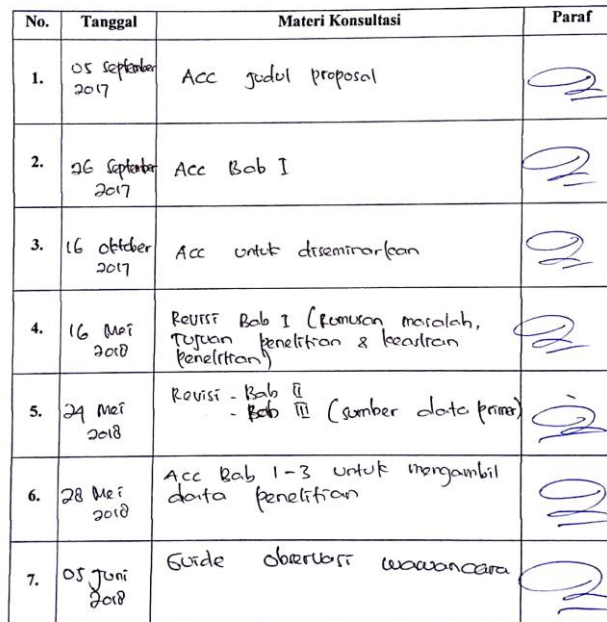 No. Tanggal Materi Konsultasi Paraf
1. 05 September 2017 Acc judul proposal
2. 26 September 2017 Acc Bab I
3. 16 Oktober 2017 Acc untuk diseminarkan
4. 16 Mei 2018 Revisi Bab I (Rumusan masalah,
Tujuan penelitian & keaslian
penelitian)
5. 24 Mei 2018 Revisi - Bab II
- Bab III (sumber data primer)
6. 28 Mei 2018 Acc Bab 1-3 untuk mengambil
data penelitian
7. 05 Juni 2018 Guide observasi wawancara